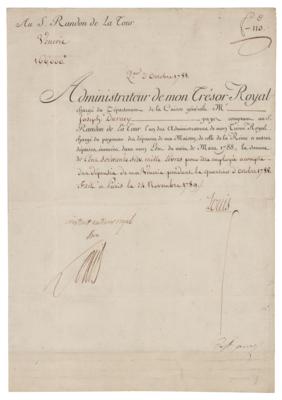 Au S. Randon de la Tour
110
Vénerie
166000#
Qer. d'Octobre 1788
Administrateur de mon Trésor Royal
chargé du Département de la Caisse générale M.
Joseph Durney payez comptant au S.
Randon de la Tour l'un des Administrateurs de mon Trésor Royal
chargé du payement des dépenses de ma Maison, de celle de la Reine et autres
dépenses, énoncées dans mon Edit du mois de Mars 1788, la somme
de Cent soixante six mille livres pour être employée acompte
des dépenses de ma Vénerie pendant le quartier d'octobre 1788
Fait à Paris le Novembre 1789
Louis
bon
Louis